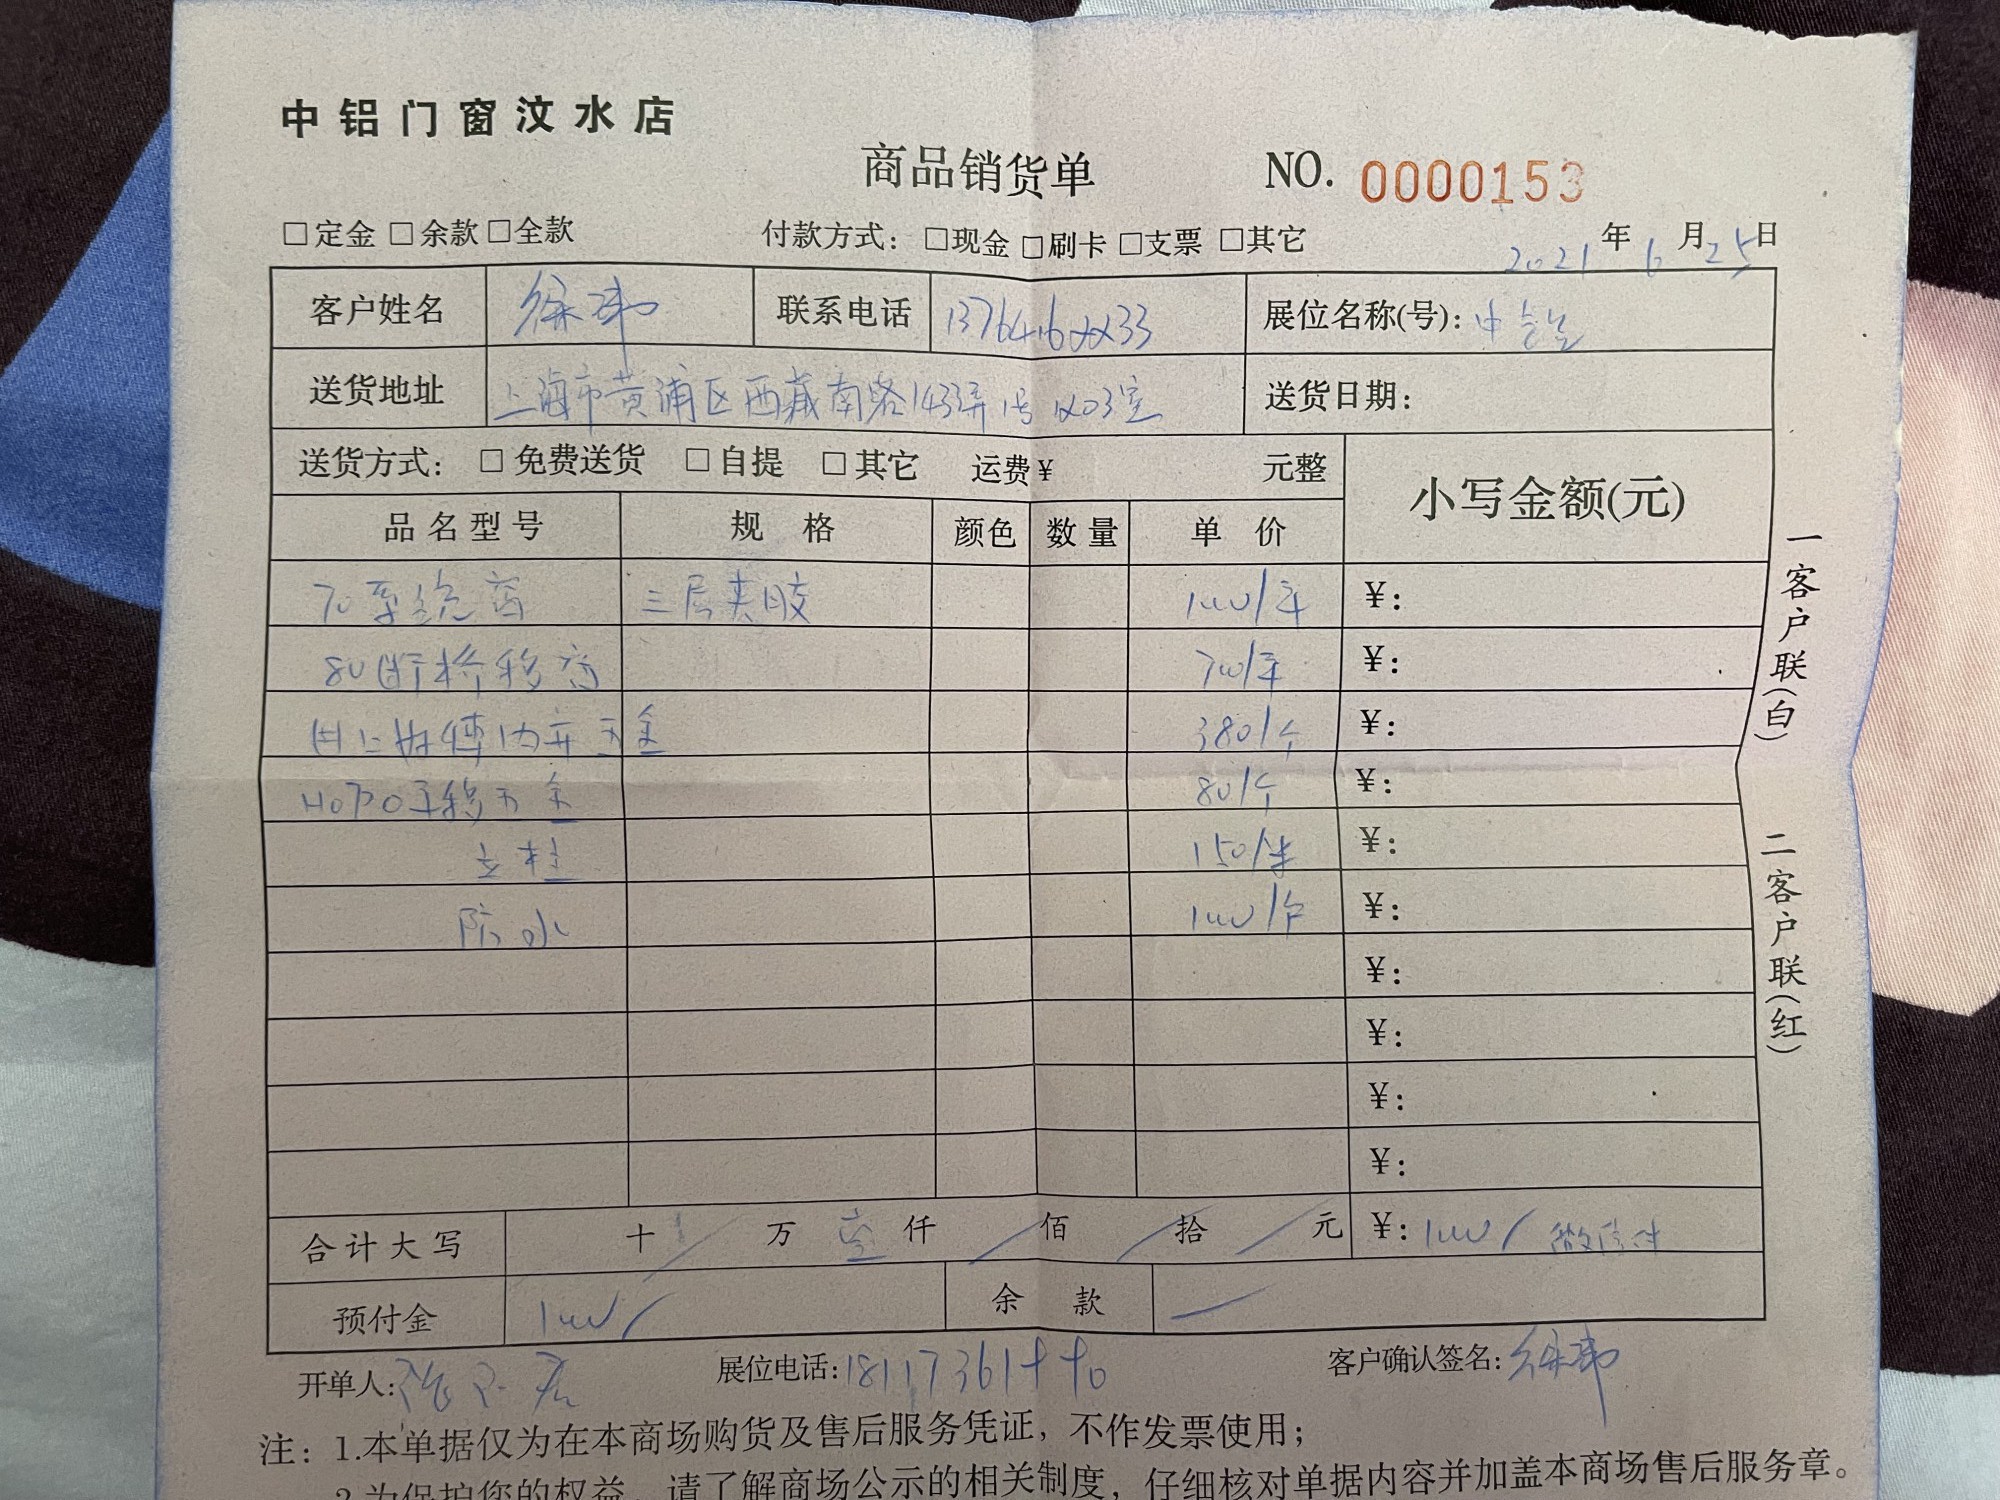 中铝门窗汶水店
商品销货单 NO. 0000153
□定金 □余款 □全款 付款方式: □现金 □刷卡 □支票 □其它 2021年6月25日
客户姓名 徐玮 联系电话 展位名称(号): 中铝
送货地址 上海市黄浦区西藏南路1433弄1号 室 送货日期:
送货方式: □ 免费送货 □ 自提 □ 其它 运费¥ 元整 小写金额(元)
品名型号 规格 颜色 数量 单价
70系统窗 三层夹胶 1000/平 ¥:
80断桥移窗 700/平 ¥:
内开五金 380/个 ¥:
HOPO平移五金 80/个 ¥:
立柱 150/米 ¥:
防水 1000/户 ¥:
¥:
¥:
¥:
¥:
合计大写 十/万壹仟/佰/拾/元 ¥: 1000/ 微信付
预付金 1000/ 余款 —
开单人: 展位电话: 客户确认签名: 徐玮
注: 1.本单据仅为在本商场购货及售后服务凭证，不作发票使用；
2.为保护您的权益，请了解商场公示的相关制度，仔细核对单据内容并加盖本商场售后服务章。
一客户联(白)
二客户联(红)